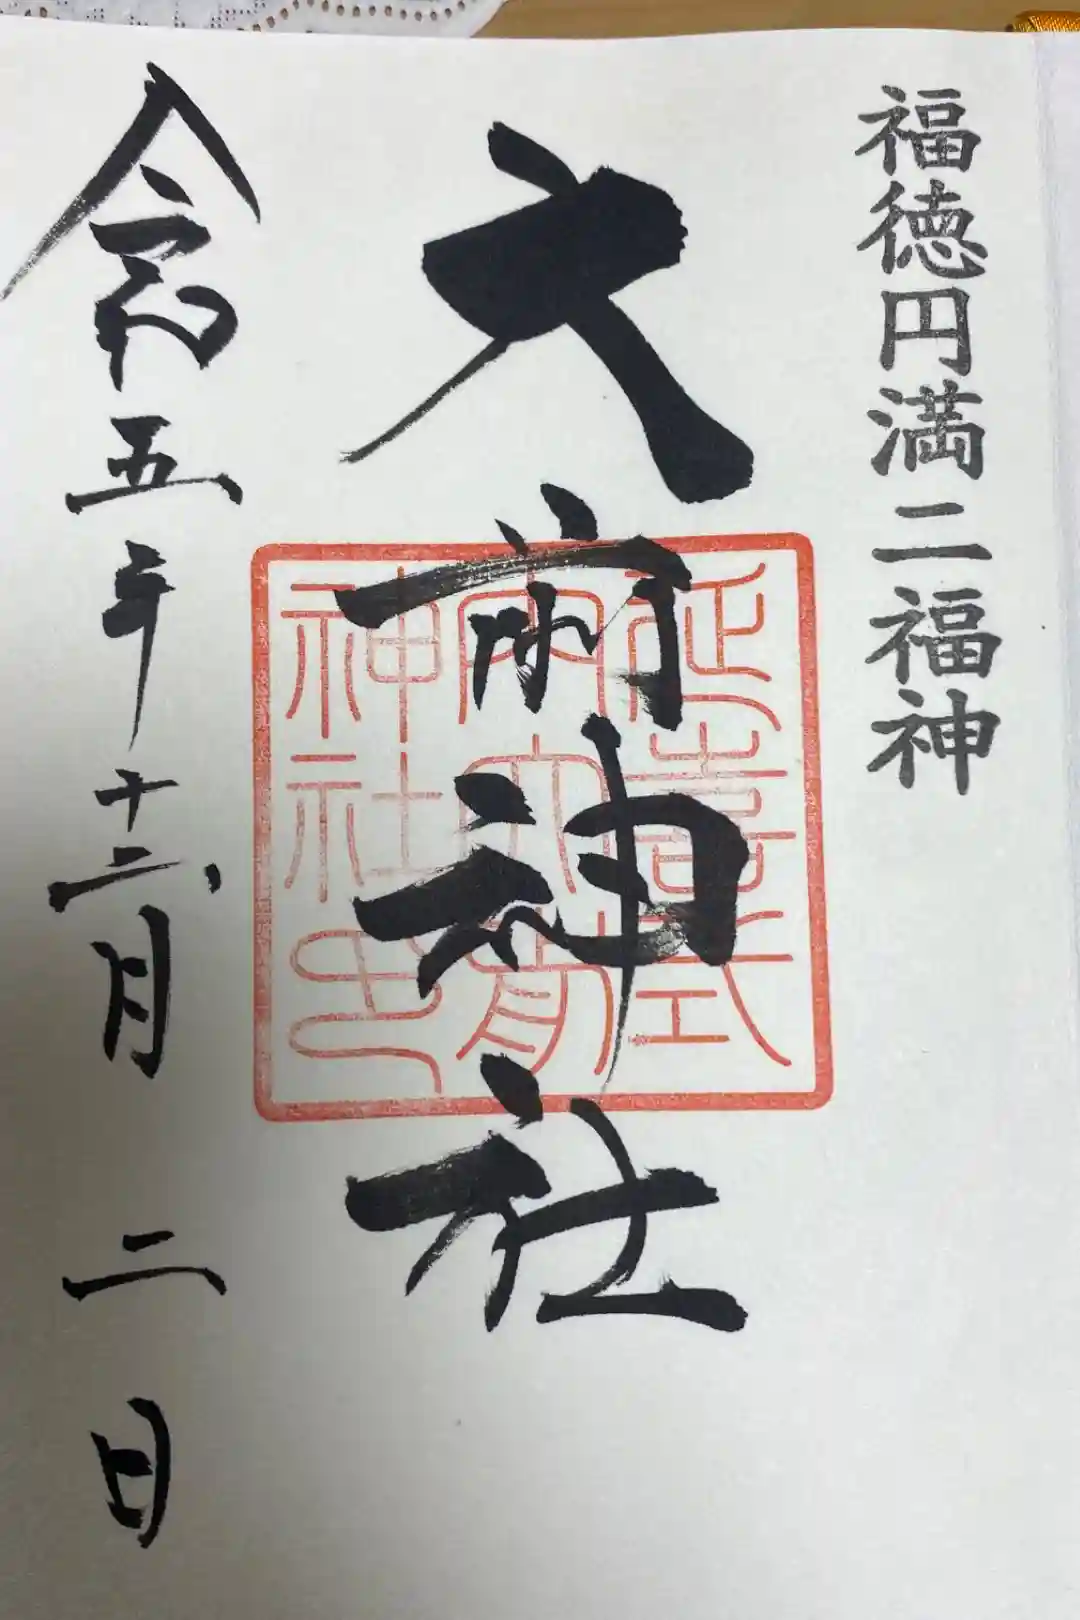 福徳円満二福神
大前神社
延喜式
内大前
神社印
令和五年十二月二日